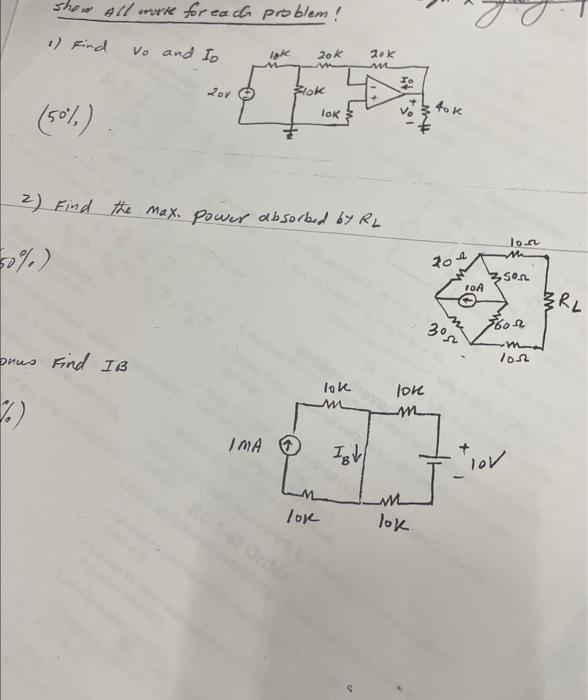 show All work for each problem!
1) Find Vo and Io
10K 20K 20K
20V 10K 10K - + Io + Vo - 40K
(50%)
2) Find the max. power absorbed by RL
50%)
10Ω
20Ω 50Ω
10A RL
30Ω 60Ω
10Ω
onus Find IB
%)
10K 10K
1MA IB + 10V -
10K 10K